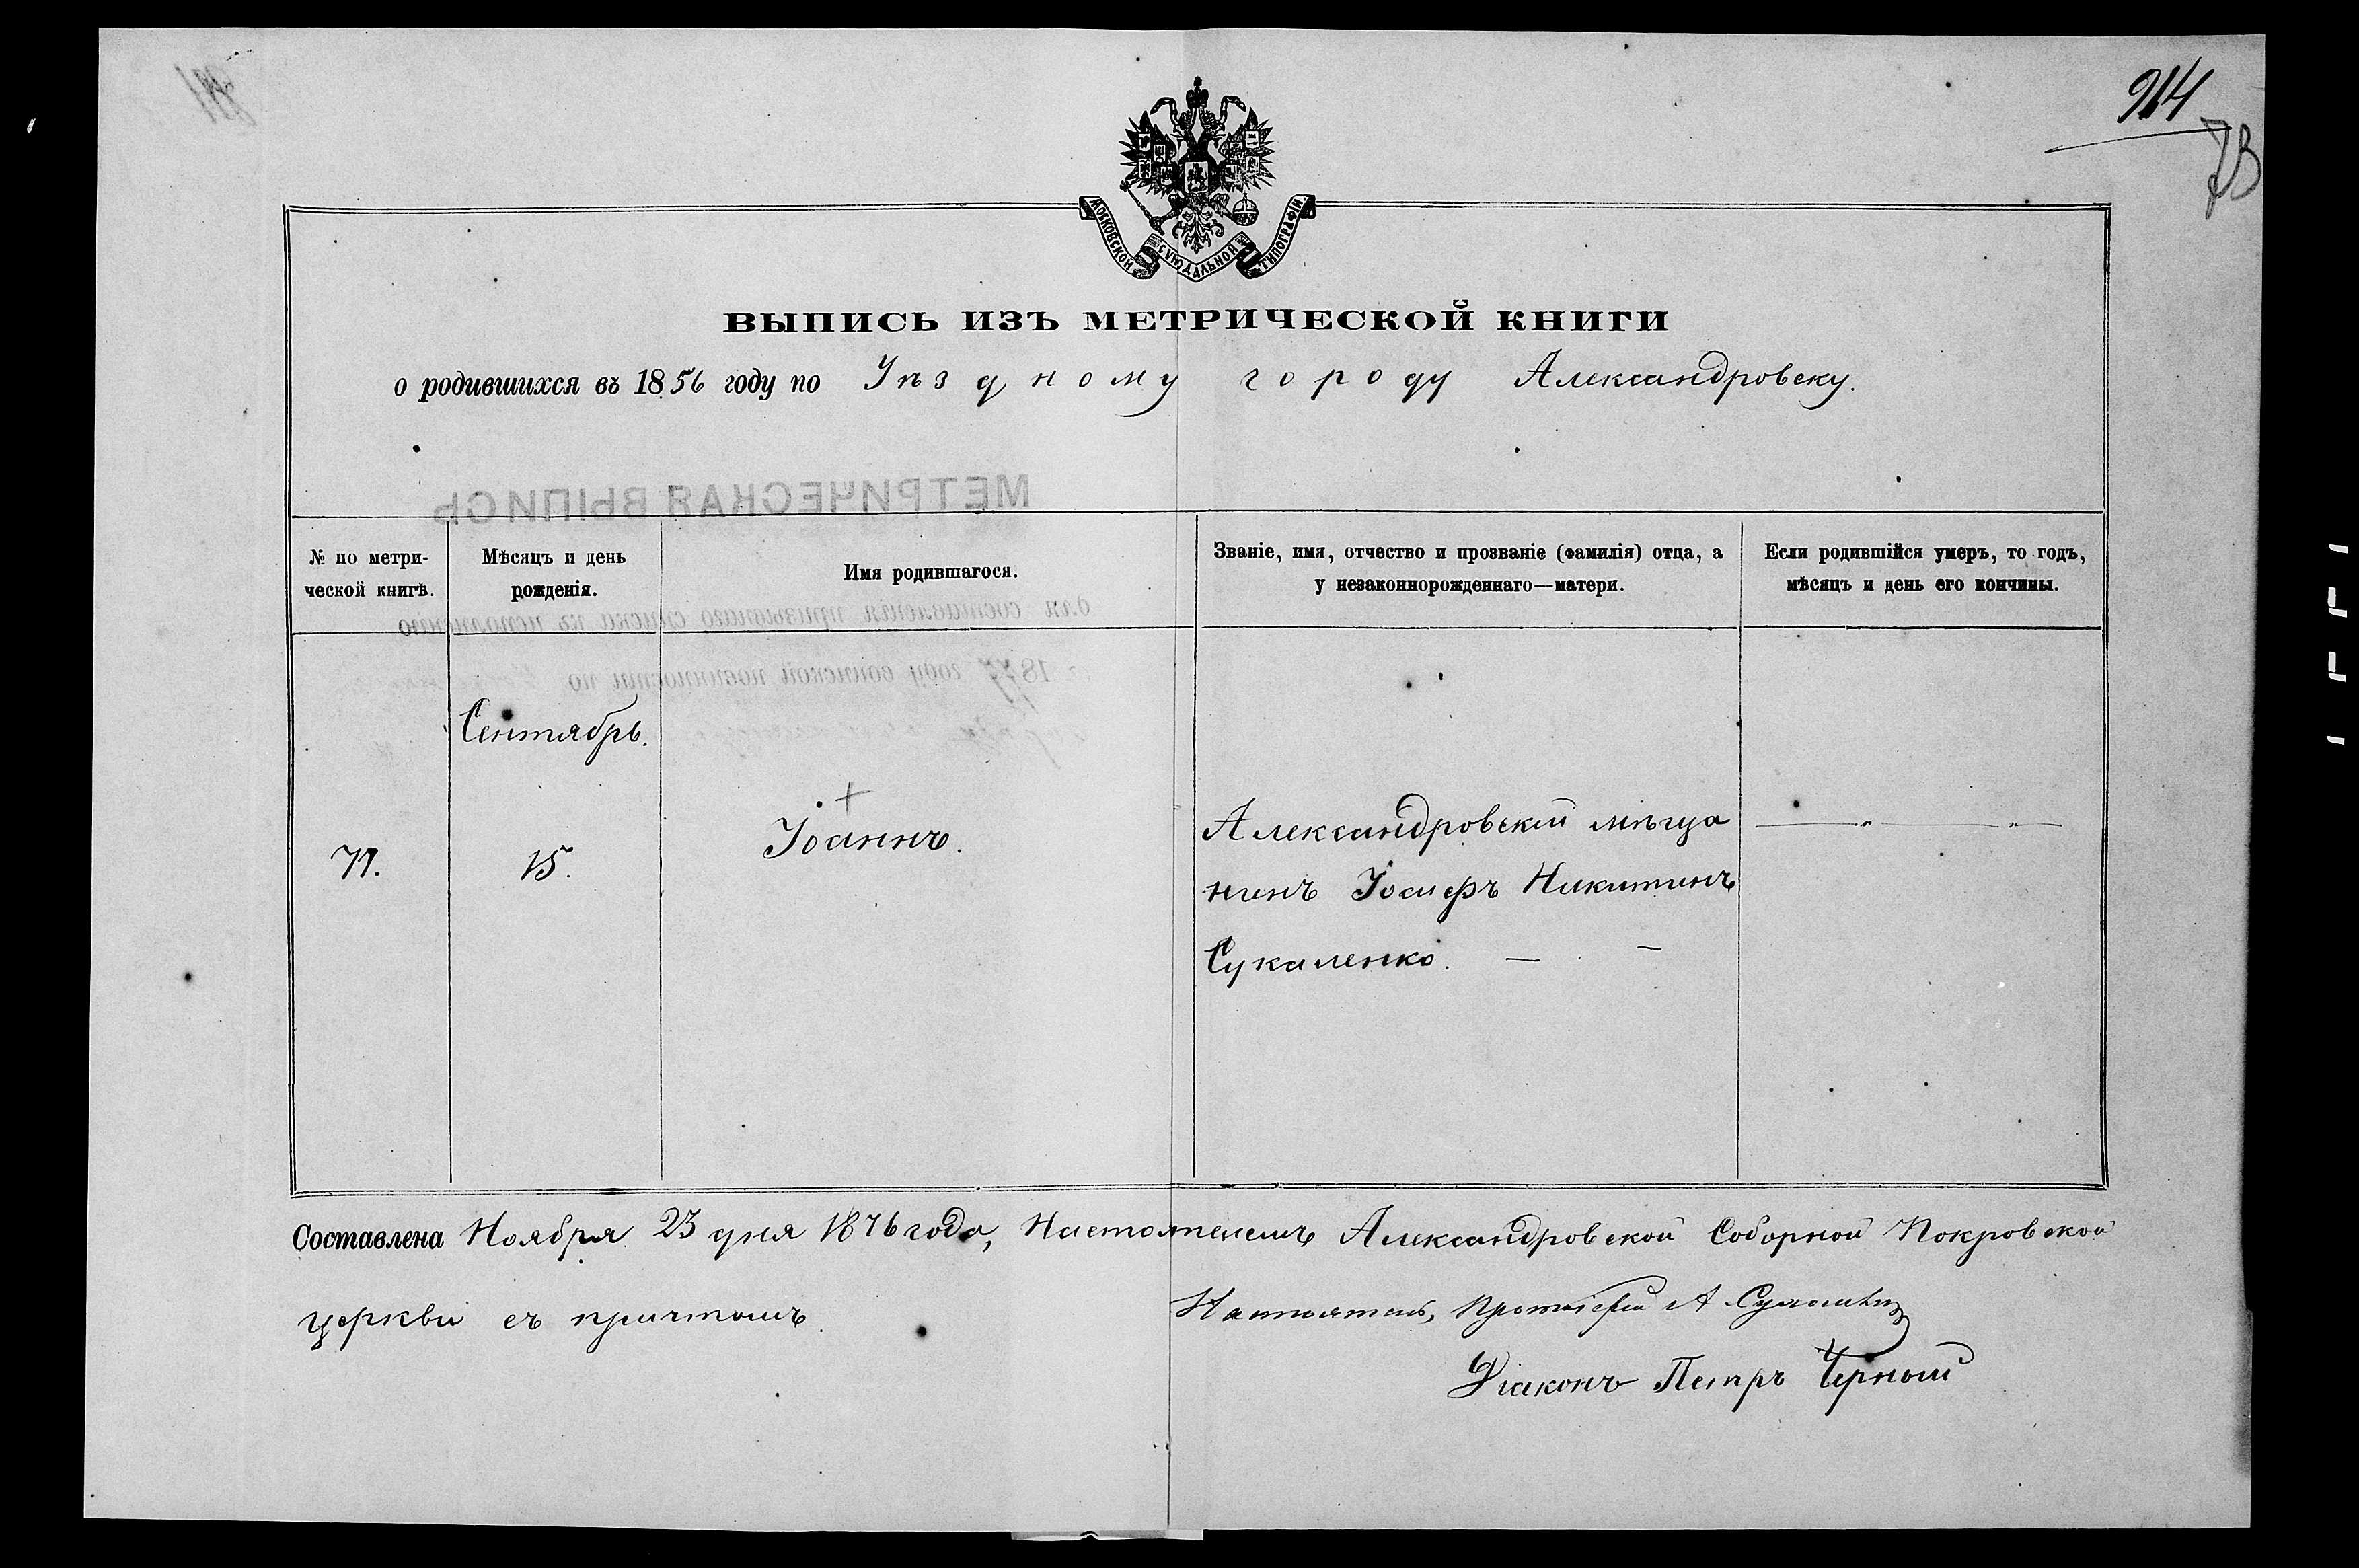 914
МОСКОВСКОЙ СѴНОДАЛЬНОЙ ТИПОГРАФІИ
ВЫПИСЬ ИЗЪ МЕТРИЧЕСКОЙ КНИГИ
о родившихся въ 1856 году по Уѣздному городу Александровску.
МЕТРИЧЕСКАЯ ВЫПИСЬ
№ по метри-
ческой книгѣ.
Мѣсяцъ и день
рожденія.
Имя родившагося.
Званіе, имя, отчество и прозваніе (фамилія) отца, а
у незаконнорожденнаго—матери.
Если родившійся умеръ, то годъ,
мѣсяцъ и день его кончины.
для составленія призывнаго списка къ исполненію
1877 году воинской повинности по
Сентябрь.
15.
Іоаннъ.
Александровскій мѣща
нинъ Іосифъ Никитинъ
Сукаленко.
Составлена Ноября 23 дня 1876 года, Настоятелемъ Александровской Соборной Покровской
церкви съ причтомъ.
Настоятель, Протоіерей А.
Діаконъ Петръ Черный